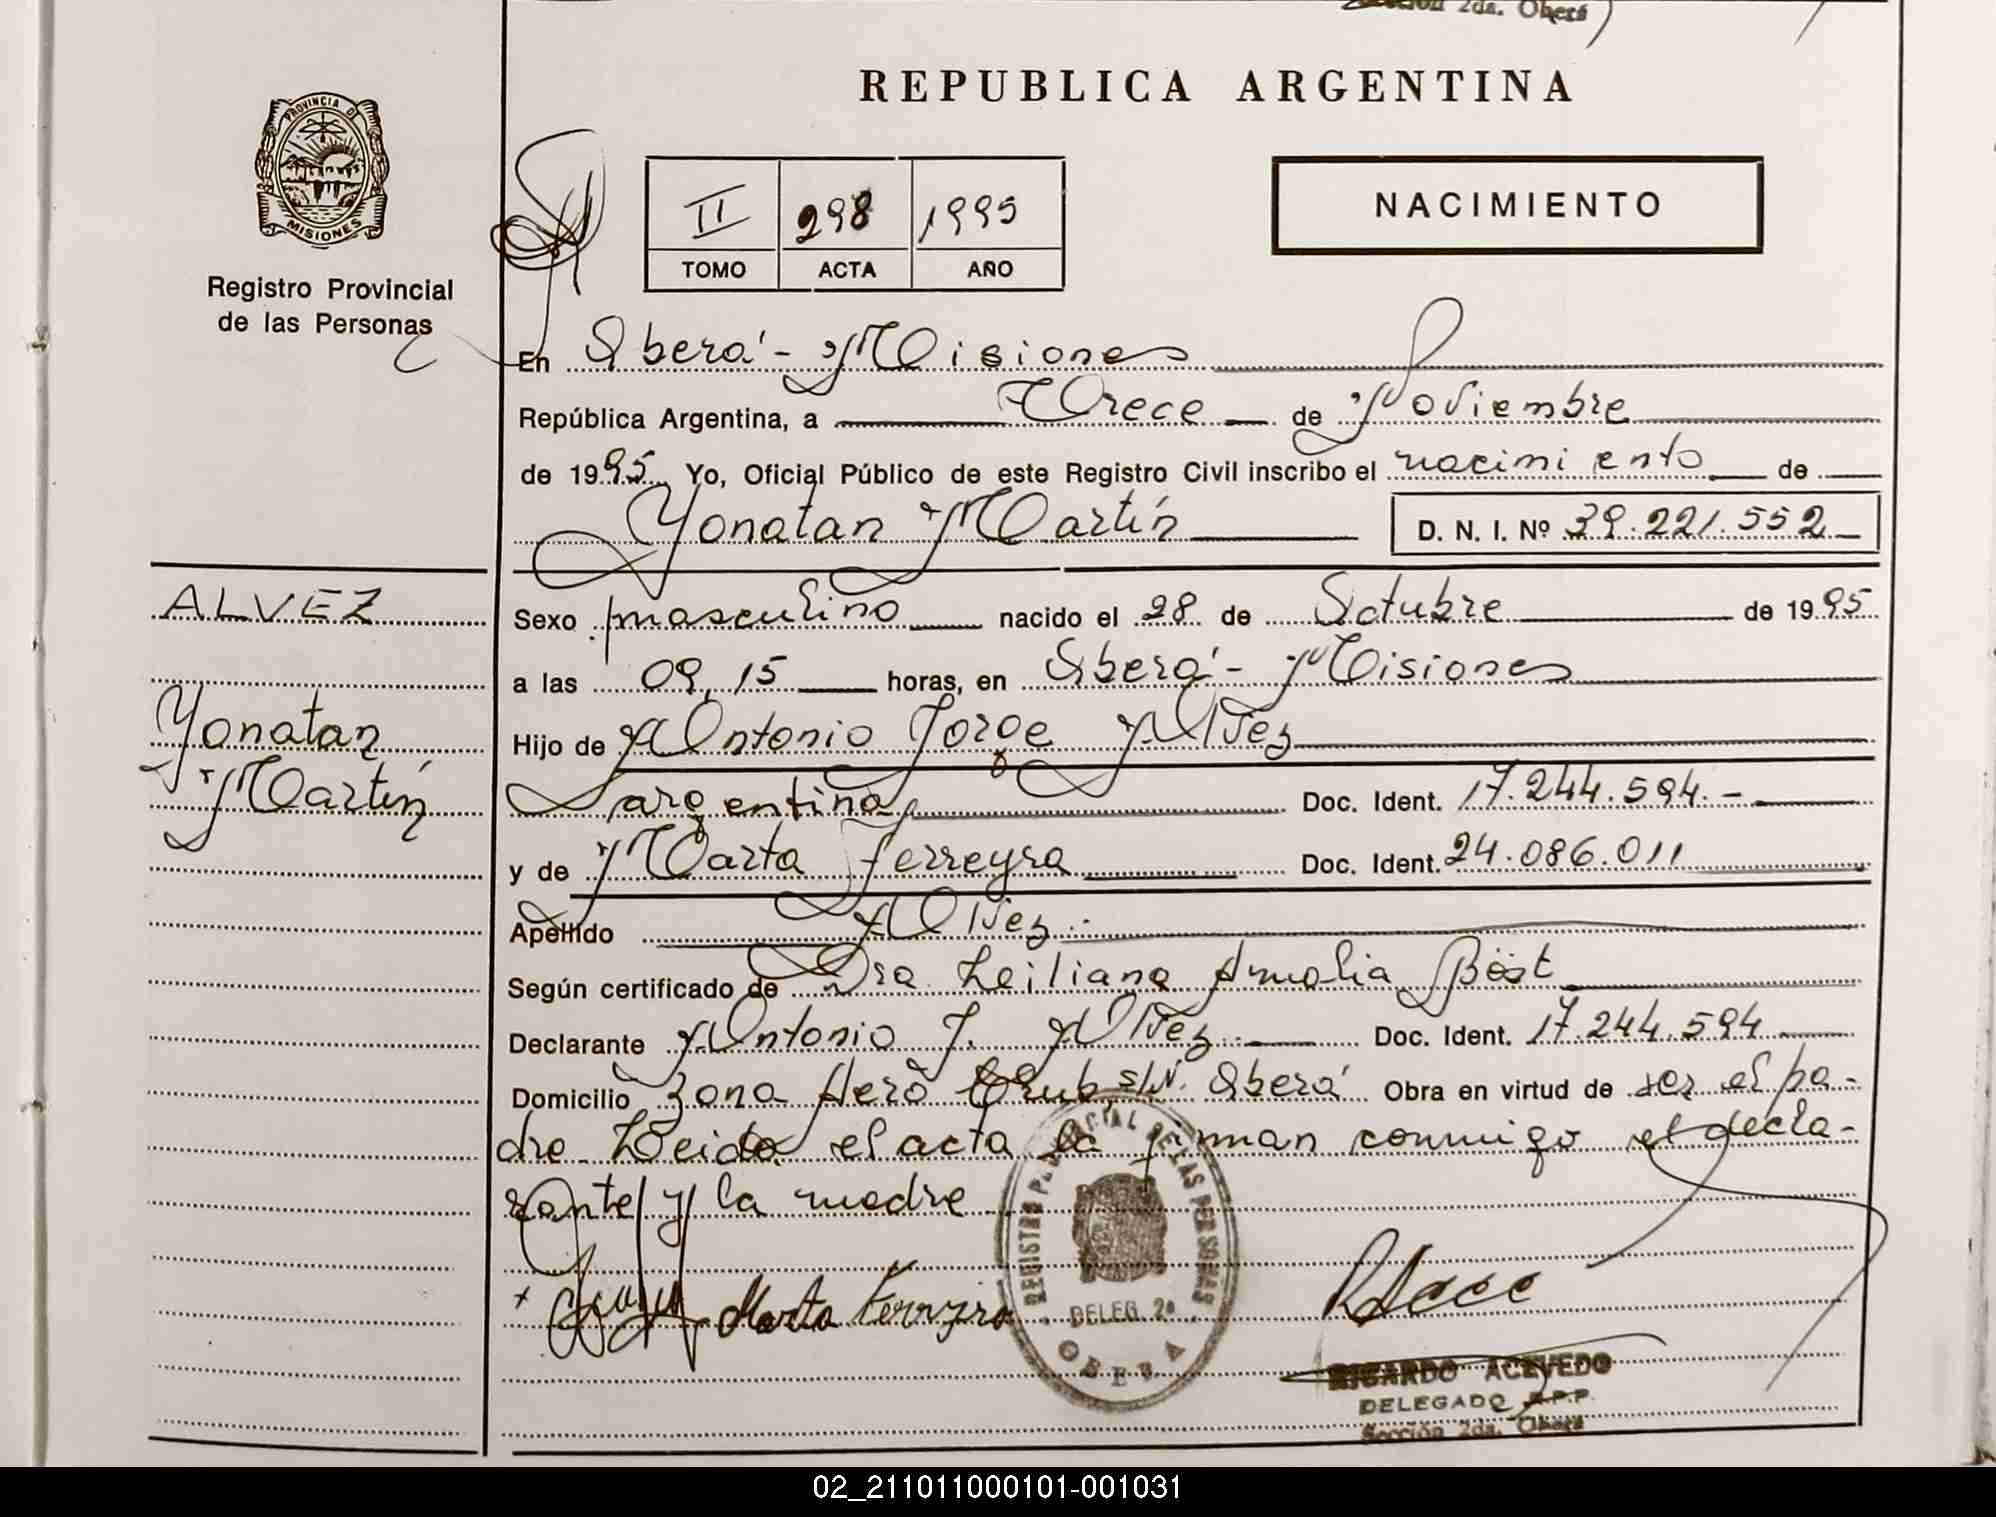 Sección 2da. Oberá
REPUBLICA ARGENTINA
PROVINCIA D
MISIONES
Registro Provincial
de las Personas
II 298 1995
TOMO ACTA AÑO
NACIMIENTO
En Oberá - Misiones
República Argentina, a Trece de Noviembre
de 1995 Yo, Oficial Público de este Registro Civil inscribo el nacimiento de
Yonatan Martín D. N. I. Nº 39.221.552
ALVEZ
Yonatan
Martín
Sexo masculino nacido el 28 de Octubre de 1995
a las 09,15 horas, en Oberá - Misiones
Hijo de Antonio Jorge Alvez
argentina Doc. Ident. 17.244.594.-
y de Marta Ferreyra Doc. Ident. 24.086.011
Apellido Alvez.
Según certificado de Dra Leiliana Amalia Böst
Declarante Antonio J. Alvez Doc. Ident. 17.244.594
Domicilio Zona Aero Club, S/N. Oberá Obra en virtud de ser el pa-
dre Leida el acta la firman conmigo el decla-
rante y la madre
Marta Ferreyra
REGISTRO PROVINCIAL DE LAS PERSONAS
DELEG. 2a.
OBERA
RICARDO ACEVEDO
DELEGADO R.P.P.
Sección 2da. Oberá
02_211011000101-001031